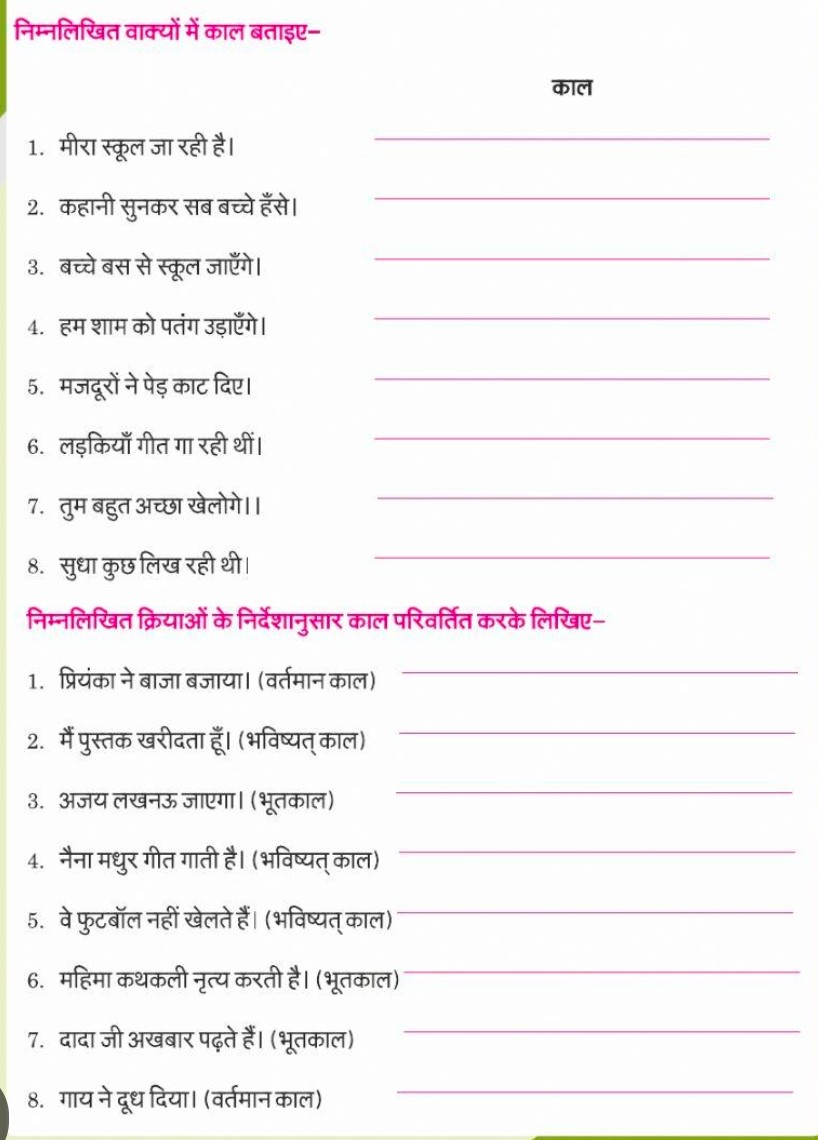 निम्नलिखित वाक्यों में काल बताइए–
काल
1. मीरा स्कूल जा रही है।
2. कहानी सुनकर सब बच्चे हँसे।
3. बच्चे बस से स्कूल जाएँगे।
4. हम शाम को पतंग उड़ाएँगे।
5. मजदूरों ने पेड़ काट दिए।
6. लड़कियाँ गीत गा रही थीं।
7. तुम बहुत अच्छा खेलोगे।।
8. सुधा कुछ लिख रही थी।
निम्नलिखित क्रियाओं के निर्देशानुसार काल परिवर्तित करके लिखिए–
1. प्रियंका ने बाजा बजाया। (वर्तमान काल)
2. मैं पुस्तक खरीदता हूँ। (भविष्यत् काल)
3. अजय लखनऊ जाएगा। (भूतकाल)
4. नैना मधुर गीत गाती है। (भविष्यत् काल)
5. वे फुटबॉल नहीं खेलते हैं। (भविष्यत् काल)
6. महिमा कथकली नृत्य करती है। (भूतकाल)
7. दादा जी अखबार पढ़ते हैं। (भूतकाल)
8. गाय ने दूध दिया। (वर्तमान काल)